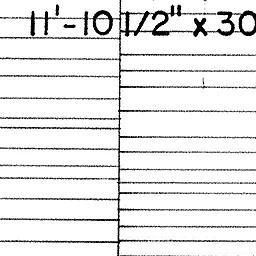 11'-10 1/2" x 30